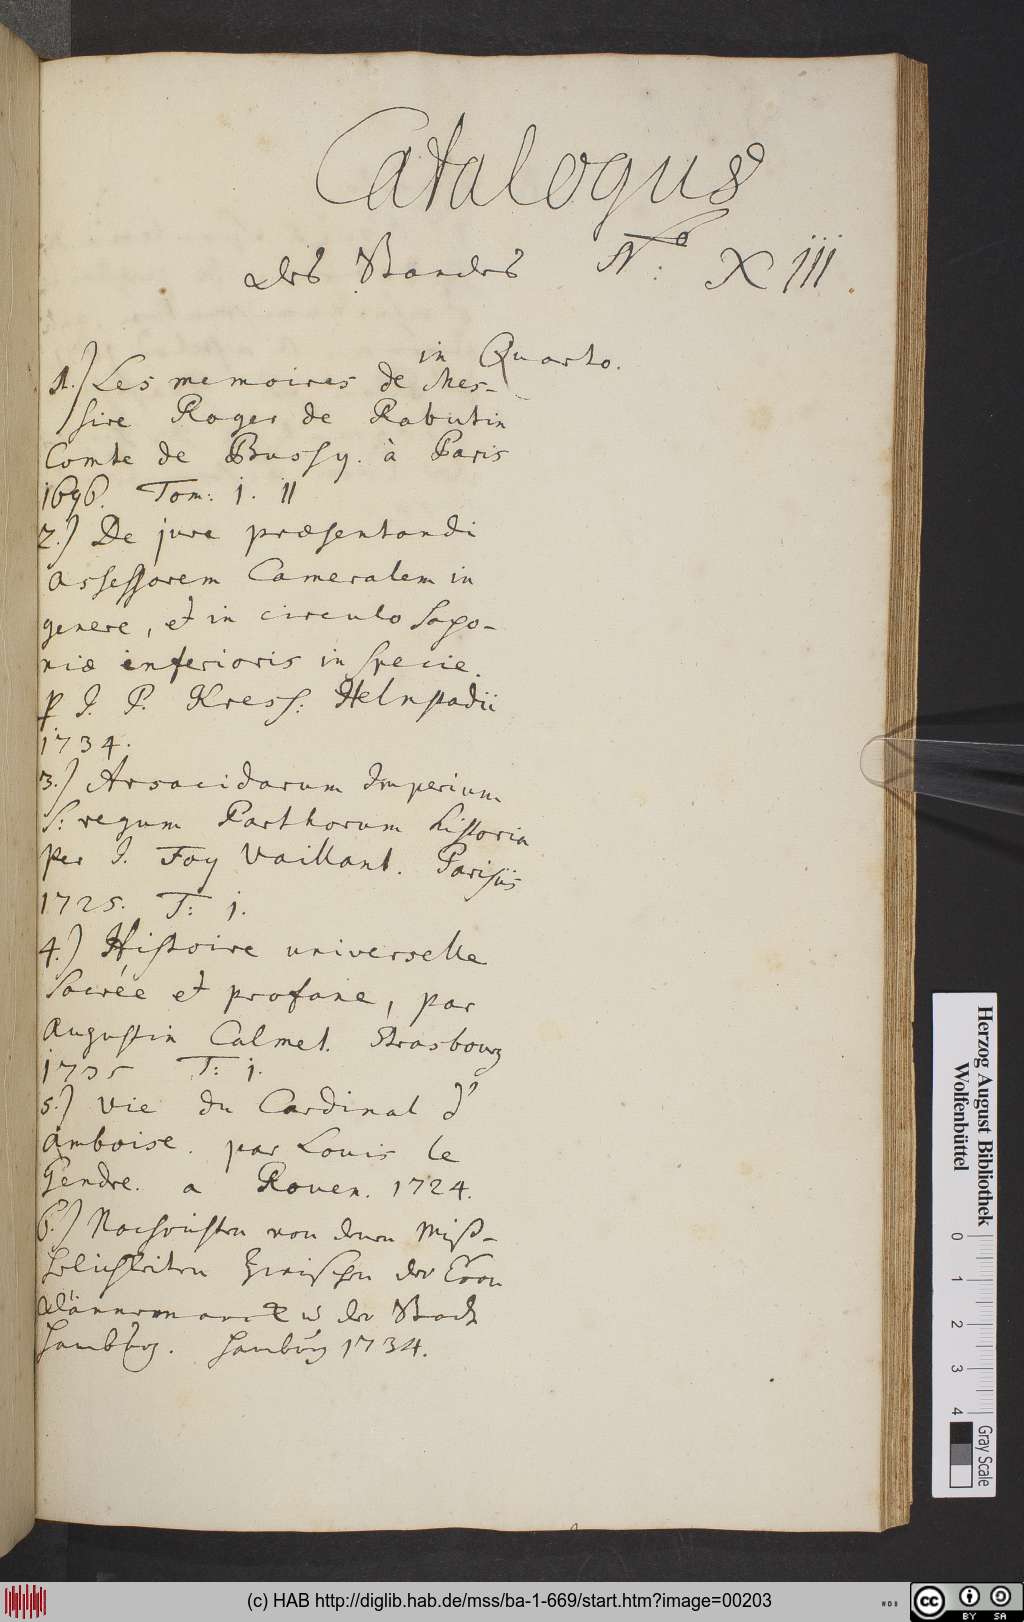 Catalogus
des Bandes No: XIII.
in Quarto.
1.) Les memoires de Mes-
sire Roger de Rabutin
Comte de Bussy. à Paris
1696. Tom: 1. II
2.) De jure præsentandi
assessorem Cameralem in
genere, et in circulo Saxo-
niæ inferioris in specie.
p J. P. Kress: Helmstadii
1734.
3.) Arsacidarum Imperium
S: regum Parthorum historia
per J. Foy Vaillant. Parisiis
1725. T: 1.
4.) Histoire universelle
sacrée et profane, par
Augustin Calmet. Strasbourg
1735 T: 1.
5.) Vie du Cardinal d'
Amboise. par Louis le
Gendre. a Rouen. 1724.
6.) Nachrichten von denen Miß-
helichkeiten zwischen der Cron
Dännemarck u der Stadt
Hamburg. Hamburg 1734.
Herzog August Bibliothek
Wolfenbüttel
0 1 2 3 4
Gray Scale
(c) HAB http://diglib.hab.de/mss/ba-1-669/start.htm?image=00203
WDB
CC BY SA